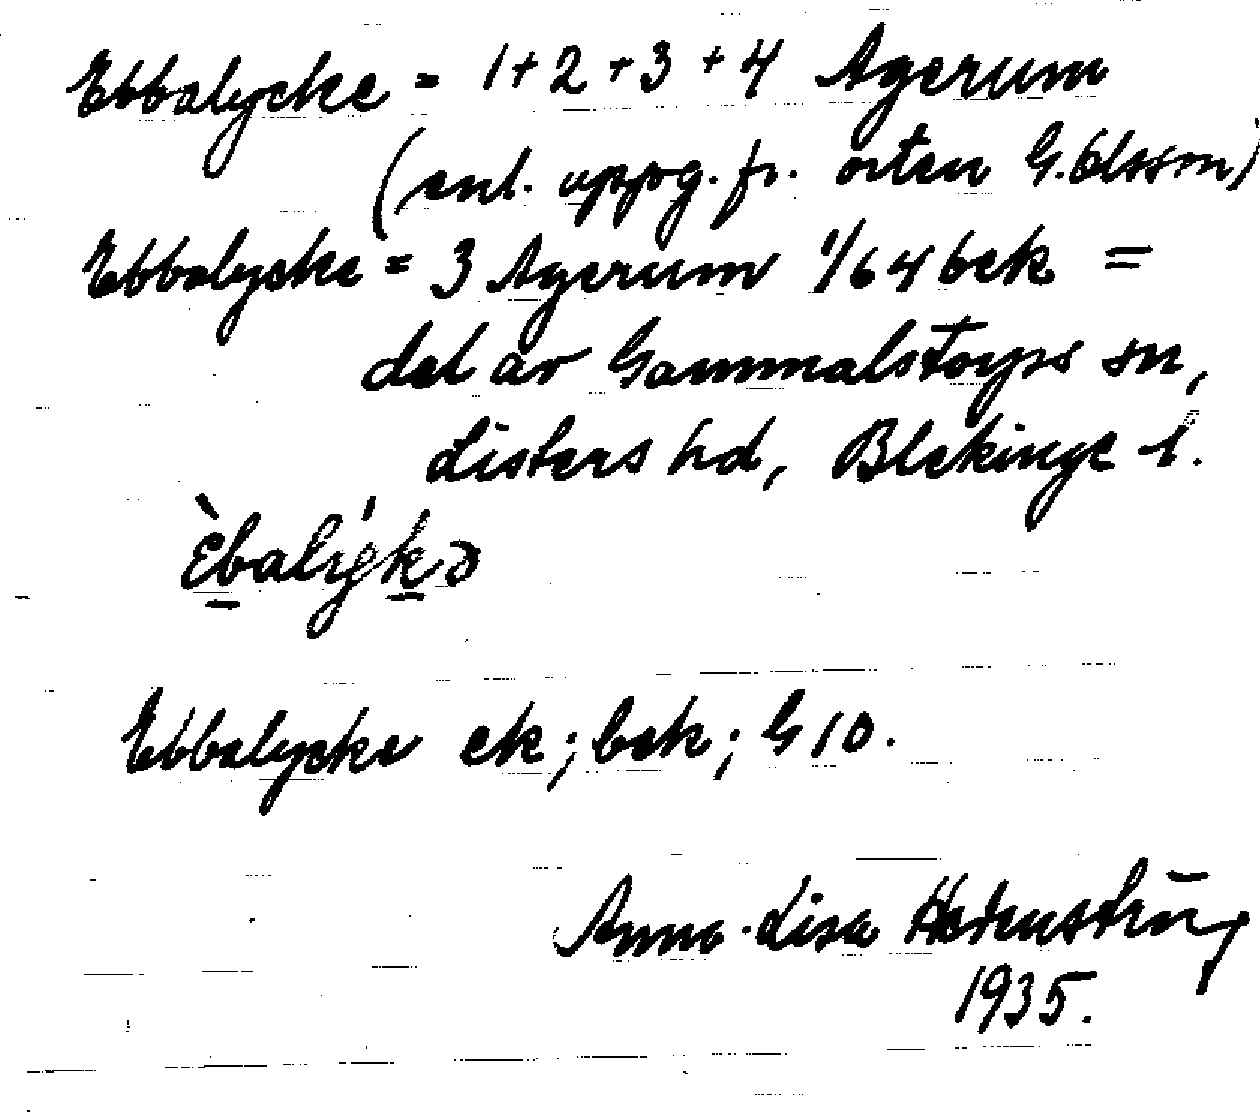 Ebbalycke = 1+2+3+4 Agerum
(enl. uppg. fr. orten G. Olsson)
Ebbalycke = 3 Agerum 1/64 bek =
del av Gammalstorps sn,
Listers hd, Blekinge l.
Èbalýkə
Ebbalycke ek; bek; G 10.
Anna-Lisa
1935.